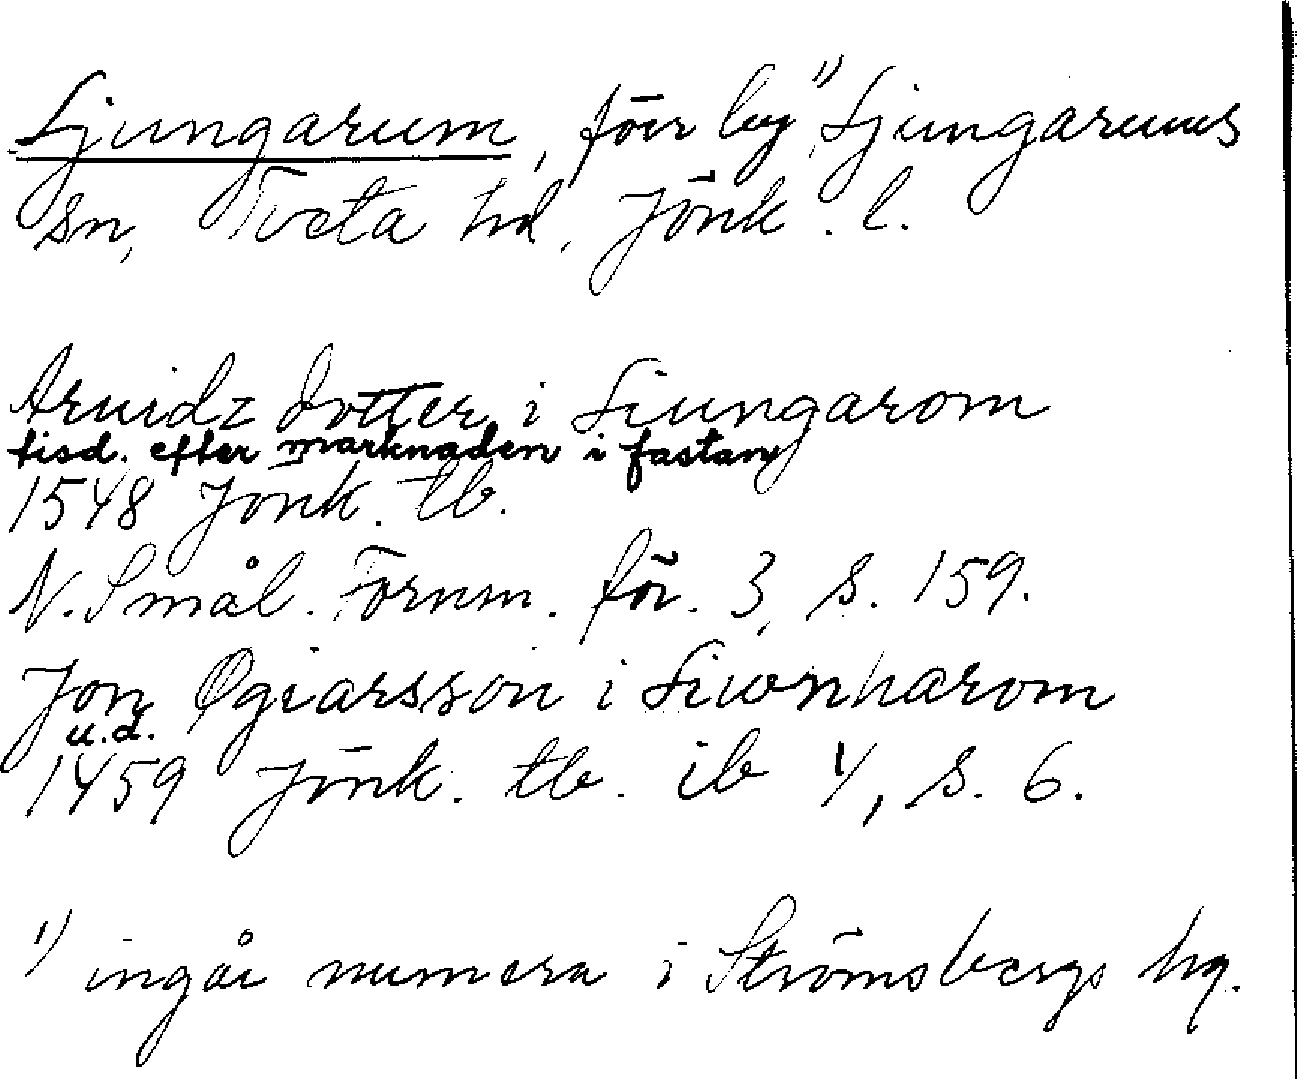 Ljungarum, förr by ¹⁾, Ljungarums
sn, Tveta hd, Jönk. l.
Aruidz dotter i Liungarom
tisd. efter marknaden i fastan
1548 Jönk. tb.
N. Smål. Fornm. för. 3, s. 159.
Jon Øgiarsson i Liwnharom
u.d.
1459 Jönk. tb. ib 4, s. 6.
¹⁾ ingår numera i Strömsbergs hg.